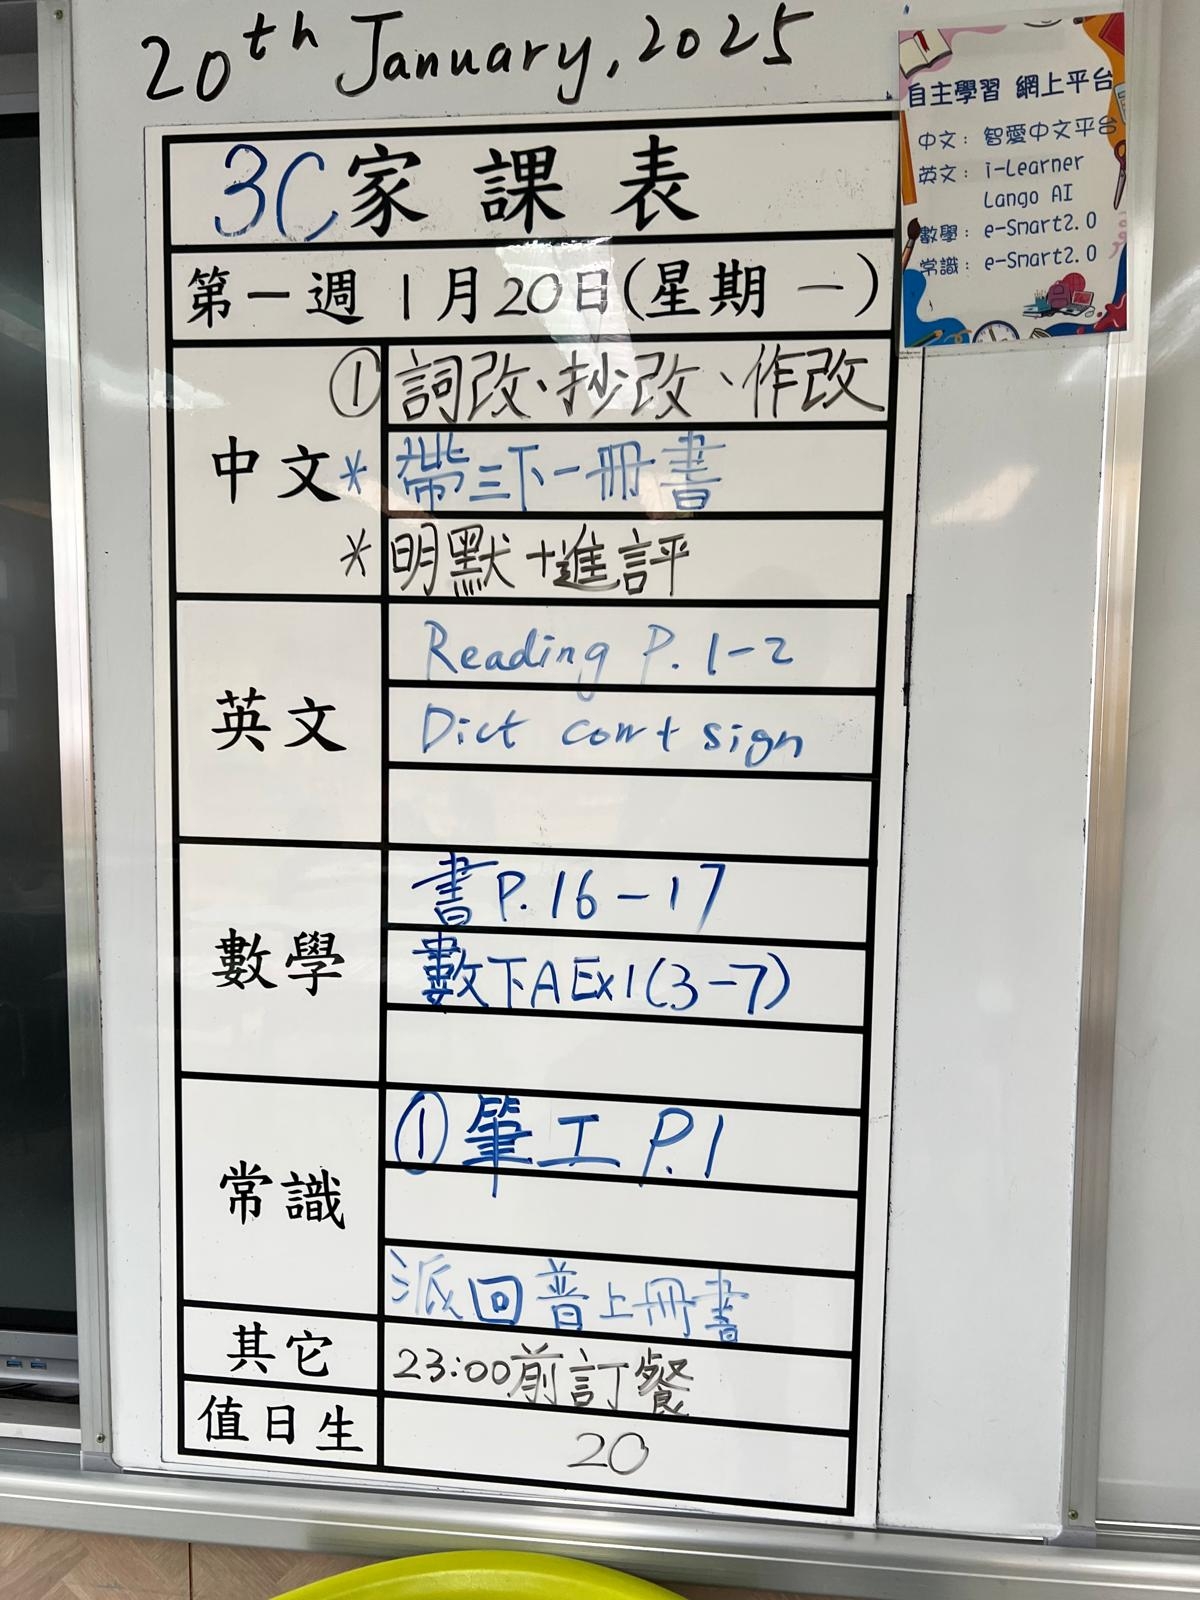 20th January, 2025
3C家課表
第一週 1月20日(星期 一)
中文
① 詞改、抄改、作改
* 帶三下一冊書
* 明默+進評
英文
Reading P. 1-2
Dict corr + sign
數學
書 P. 16-17
數下A Ex1 (3-7)
常識
① 筆工 P.1
派回普上冊書
其它
23:00前訂餐
值日生
20
自主學習 網上平台
中文: 智愛中文平台
英文: i-Learner
Lango AI
數學: e-Smart2.0
常識: e-Smart2.0